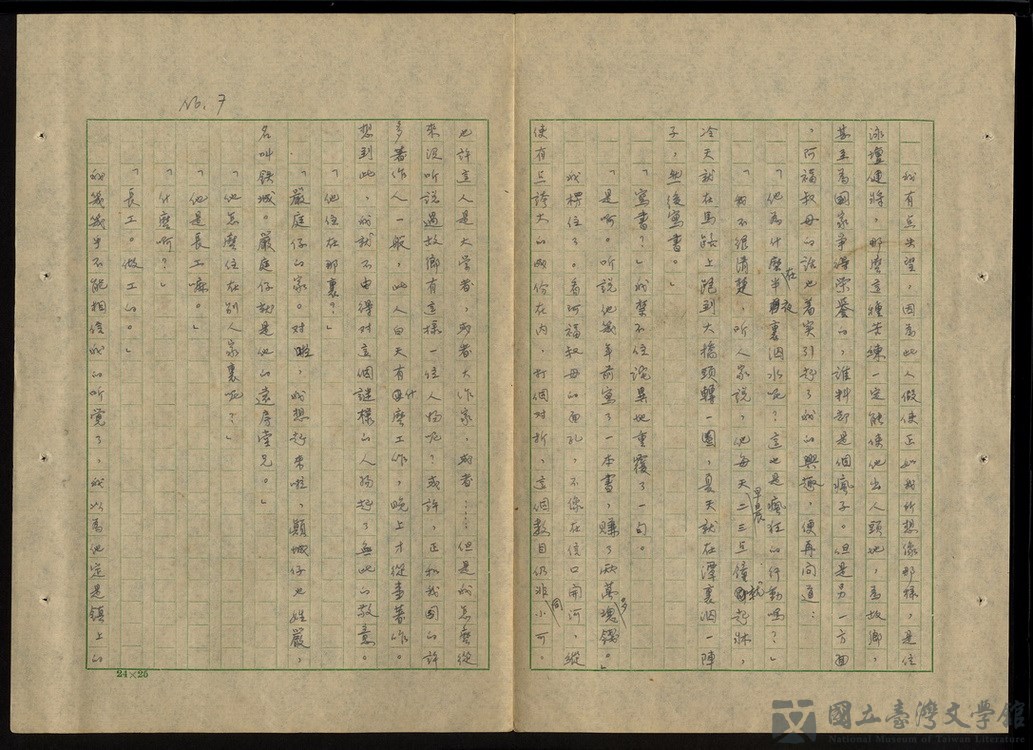 我有点失望，因為此人做使正如我所想像那樣，是位
泳壇健將，那麼這種苦練一定能使他出人頭地，為故鄉，
甚至為國家爭得榮譽的，誰料却是個瘋子。但是另一方面
，阿福叔母的話也着实引起了我的興趣，便再问道：
「他為什麼在半夜裏泅水呢？這也是瘋狂的行動嗎？」
「我不很清楚，听人家說，他每天早晨二三点鐘就起牀，
冷天就在馬路上跑到大橋頭轉一圈，夏天就在潭裏泅一陣
子，然後寫書。」
「寫書？」我禁不住詫異地重覆了一句。
「是啊。听說他幾年前寫了一本書，賺了两萬多塊錢。」
我楞住了。看阿福叔母的面孔，不像在信口開河，縱
使有点誇大的成份在内，打個对折，這個数目仍非同小可。
也許這人是大学者，或者大作家，或者……但是我怎麼從
來没听說過故鄉有這樣一位人物呢？或許，正和我國的許
多著作人一般，此人白天有什麼工作，晚上才從事著作。
想到此，我就不由得对這個謎樣的人物起了無比的敬意。
「他住在那裏？」
「嚴庭仔的家。对啦，我想起來啦，顛城仔也姓嚴，
名叫鉄城。嚴庭仔就是他的遠房堂兄。」
「他怎麼住在别人家裏呢？」
「他是長工嘛。」
「什麼啊？」
「長工。做工的。」
我幾幾乎不能相信我的听覚了，我以為他定是鎮上的
No. 7
24×25
國立臺灣文学館
National Museum of Taiwan Literature